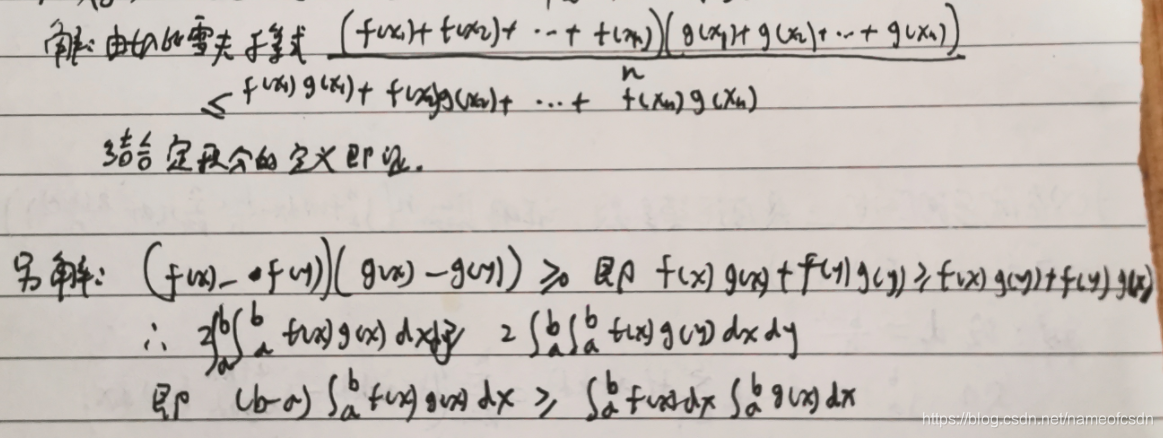 解：由切比雪夫不等式 (f(x₁)+f(x₂)+…+f(xₙ))(g(x₁)+g(x₂)+…+g(xₙ)) / n
≤ f(x₁)g(x₁)+f(x₂)g(x₂)+…+f(xₙ)g(xₙ)
结合定积分的定义即证.
另解：(f(x)-f(y))(g(x)-g(y))≥0 即 f(x)g(x)+f(y)g(y)≥f(x)g(y)+f(y)g(x)
∴ 2∫ₐᵇ∫ₐᵇ f(x)g(x)dxdy≥ 2∫ₐᵇ∫ₐᵇ f(x)g(y)dxdy
即 (b-a)∫ₐᵇf(x)g(x)dx ≥ ∫ₐᵇf(x)dx∫ₐᵇg(x)dx
https://blog.csdn.net/nameofcsdn